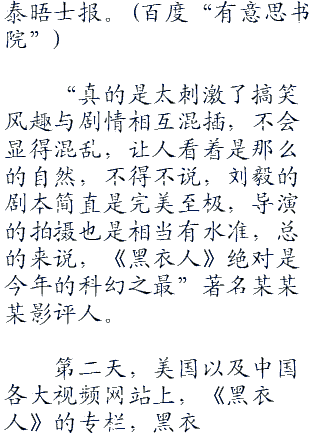 泰晤士报。(百度“有意思书
院”)
“真的是太刺激了搞笑
风趣与剧情相互混插，不会
显得混乱，让人看着是那么
的自然，不得不说，刘毅的
剧本简直是完美至极，导演
的拍摄也是相当有水准，总
的来说，《黑衣人》绝对是
今年的科幻之最”著名某某
某影评人。
第二天，美国以及中国
各大视频网站上，《黑衣
人》的专栏，黑衣